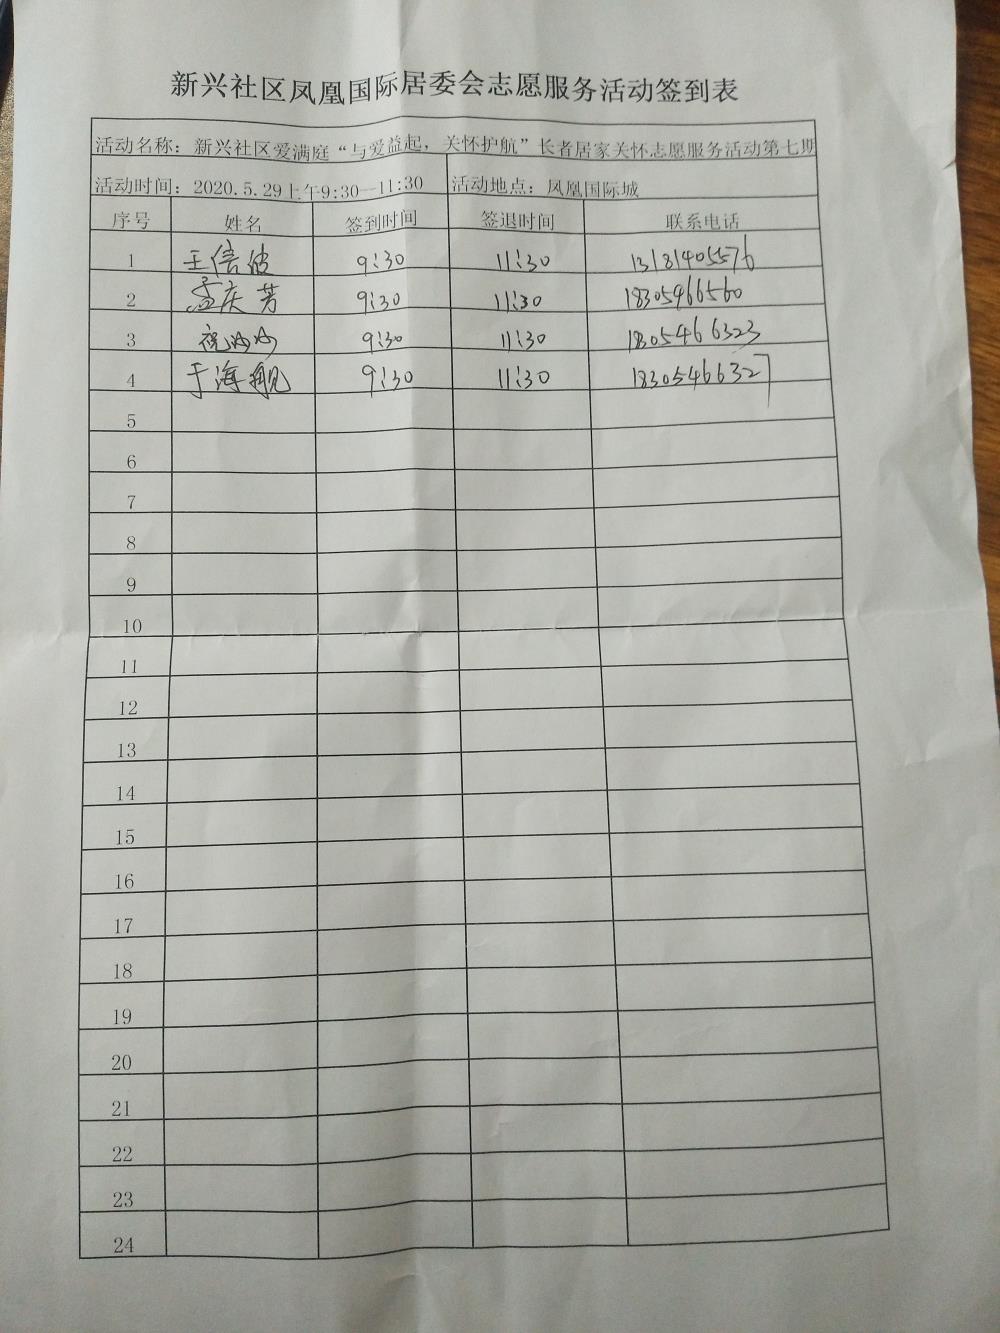 新兴社区凤凰国际居委会志愿服务活动签到表
活动名称：新兴社区爱满庭“与爱益起，关怀护航”长者居家关怀志愿服务活动第七期
活动时间：2020.5.29上午9:30—11:30 活动地点：凤凰国际城
序号 姓名 签到时间 签退时间 联系电话
1 王信波 9:30 11:30 13181405576
2 孟庆芳 9:30 11:30 18305466560
3 祝妙妙 9:30 11:30 1805466323
4 于海舰 9:30 11:30 18305466327
5
6
7
8
9
10
11
12
13
14
15
16
17
18
19
20
21
22
23
24